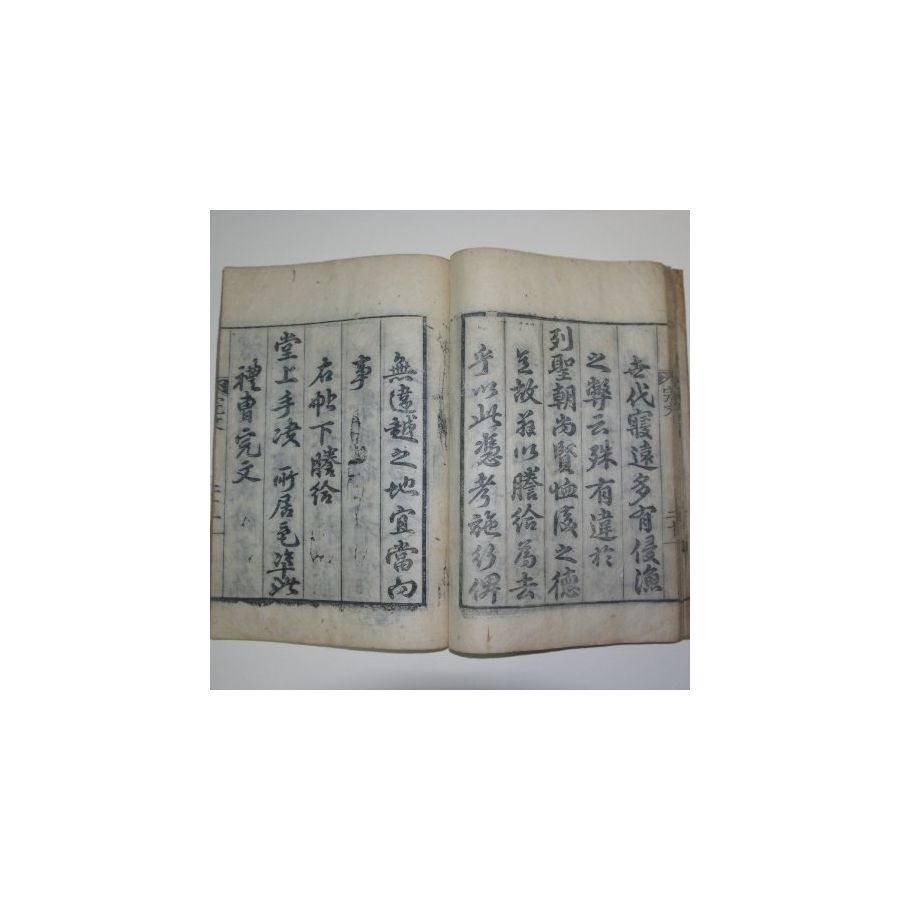 世代寢遠多有侵漁
之弊云殊有違於
列聖朝尚賢恤後之德
意故玆以謄給爲去
乎以此憑考施行俾
無違越之地宜當向
事
右帖下謄給
堂上手决 所居邑準此
禮曹完文